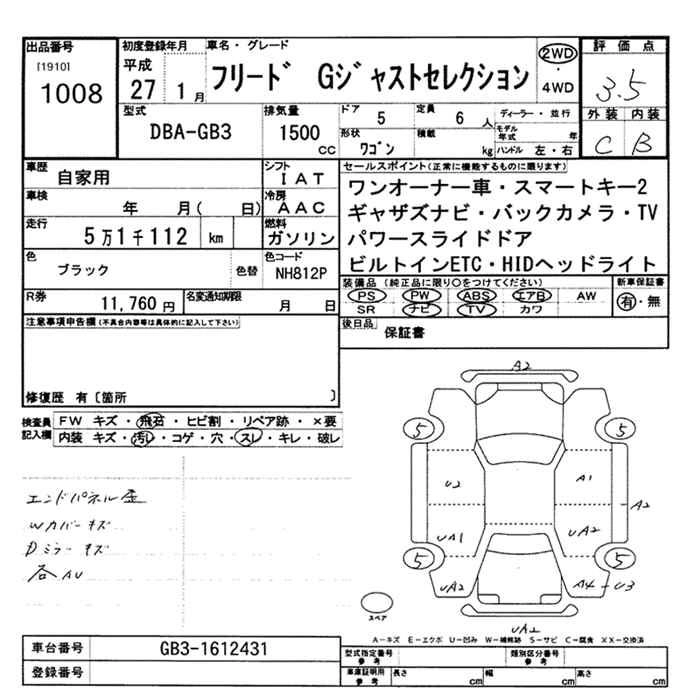 出品番号 初度登録年月 車名・グレード 2WD 評価点
[1910] 平成
1008 27 1月 フリード Gジャストセレクション ・4WD 3.5
型式 排気量 ドア 5 定員 6人 ディーラー・並行 外装 内装
DBA-GB3 1500cc 形状 ワゴン 積載 kg モデル年式 年 C B
ハンドル 左・右
車歴 自家用 シフト IAT セールスポイント(正常に機能するものに限ります)
車検 年 月( 日) 冷房 AAC ワンオーナー車・スマートキー2
走行 5万1千112 km 燃料 ガソリン ギャザズナビ・バックカメラ・TV
色 ブラック 色替 色コード NH812P パワースライドドア
ビルトインETC・HIDヘッドライト
R券 11,760円 名変通知期限 月 日 装備品(純正品に限り○をつけてください) 新車保証書
PS PW ABS エアB AW 有・無
SR ナビ TV カワ
注意事項申告欄(不具合内容等は具体的に記入して下さい) 後日品 保証書
修復歴 有〔箇所 〕
検査員記入欄 FW キズ・飛石・ヒビ割・リペア跡・×要
内装 キズ・汚レ・コゲ・穴・スレ・キレ・破レ
A2
5 5
U2 A1
A2
UA1 UA2
5 5
UA2 A4-U3
UA2
スペア
エンドパネル歪
Wカバーキズ
Dミラーキズ
各AU
A-キズ E-エクボ U-凹み W-補修跡 S-サビ C-腐食 XX-交換済
車台番号 GB3-1612431 型式指定番号 参考 類別区分番号 参考
登録番号 車庫証明用 参考 長さ cm 幅 cm 高さ cm